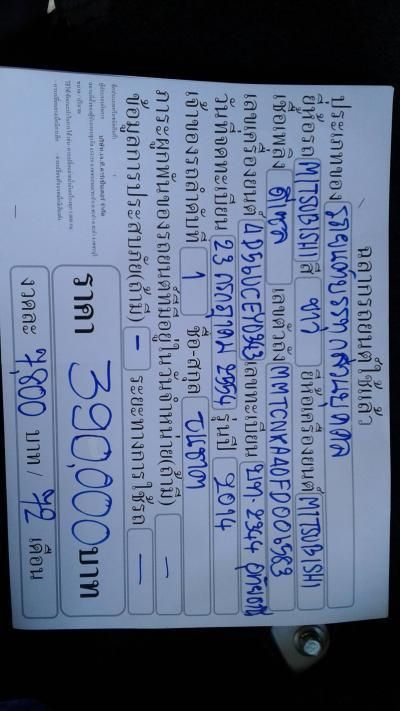 ฉลากรถยนต์ใช้แล้ว
ประเภทของ รถยนต์บรรทุกส่วนบุคคล
ยี่ห้อรถ MITSUBISHI สี ขาว ยี่ห้อเครื่องยนต์ MITSUBISHI
เชื้อเพลิง ดีเซล เลขตัวถัง MMTCNKA40FD006563
เลขเครื่องยนต์ 4D56UCFY0763 เลขทะเบียน 2344
วันที่จดทะเบียน 23 กรกฎาคม รุ่นปี 2014
เจ้าของรถลำดับที่ 1 ชื่อ-สกุล
ภาระผูกพันของรถยนต์ที่มีอยู่ในวันจำหน่าย(ถ้ามี) -
ข้อมูลการประสบภัย(ถ้ามี) - ระยะทางการใช้รถ -
ราคา 390,000 บาท
งวดละ 7,800 บาท / 72 เดือน